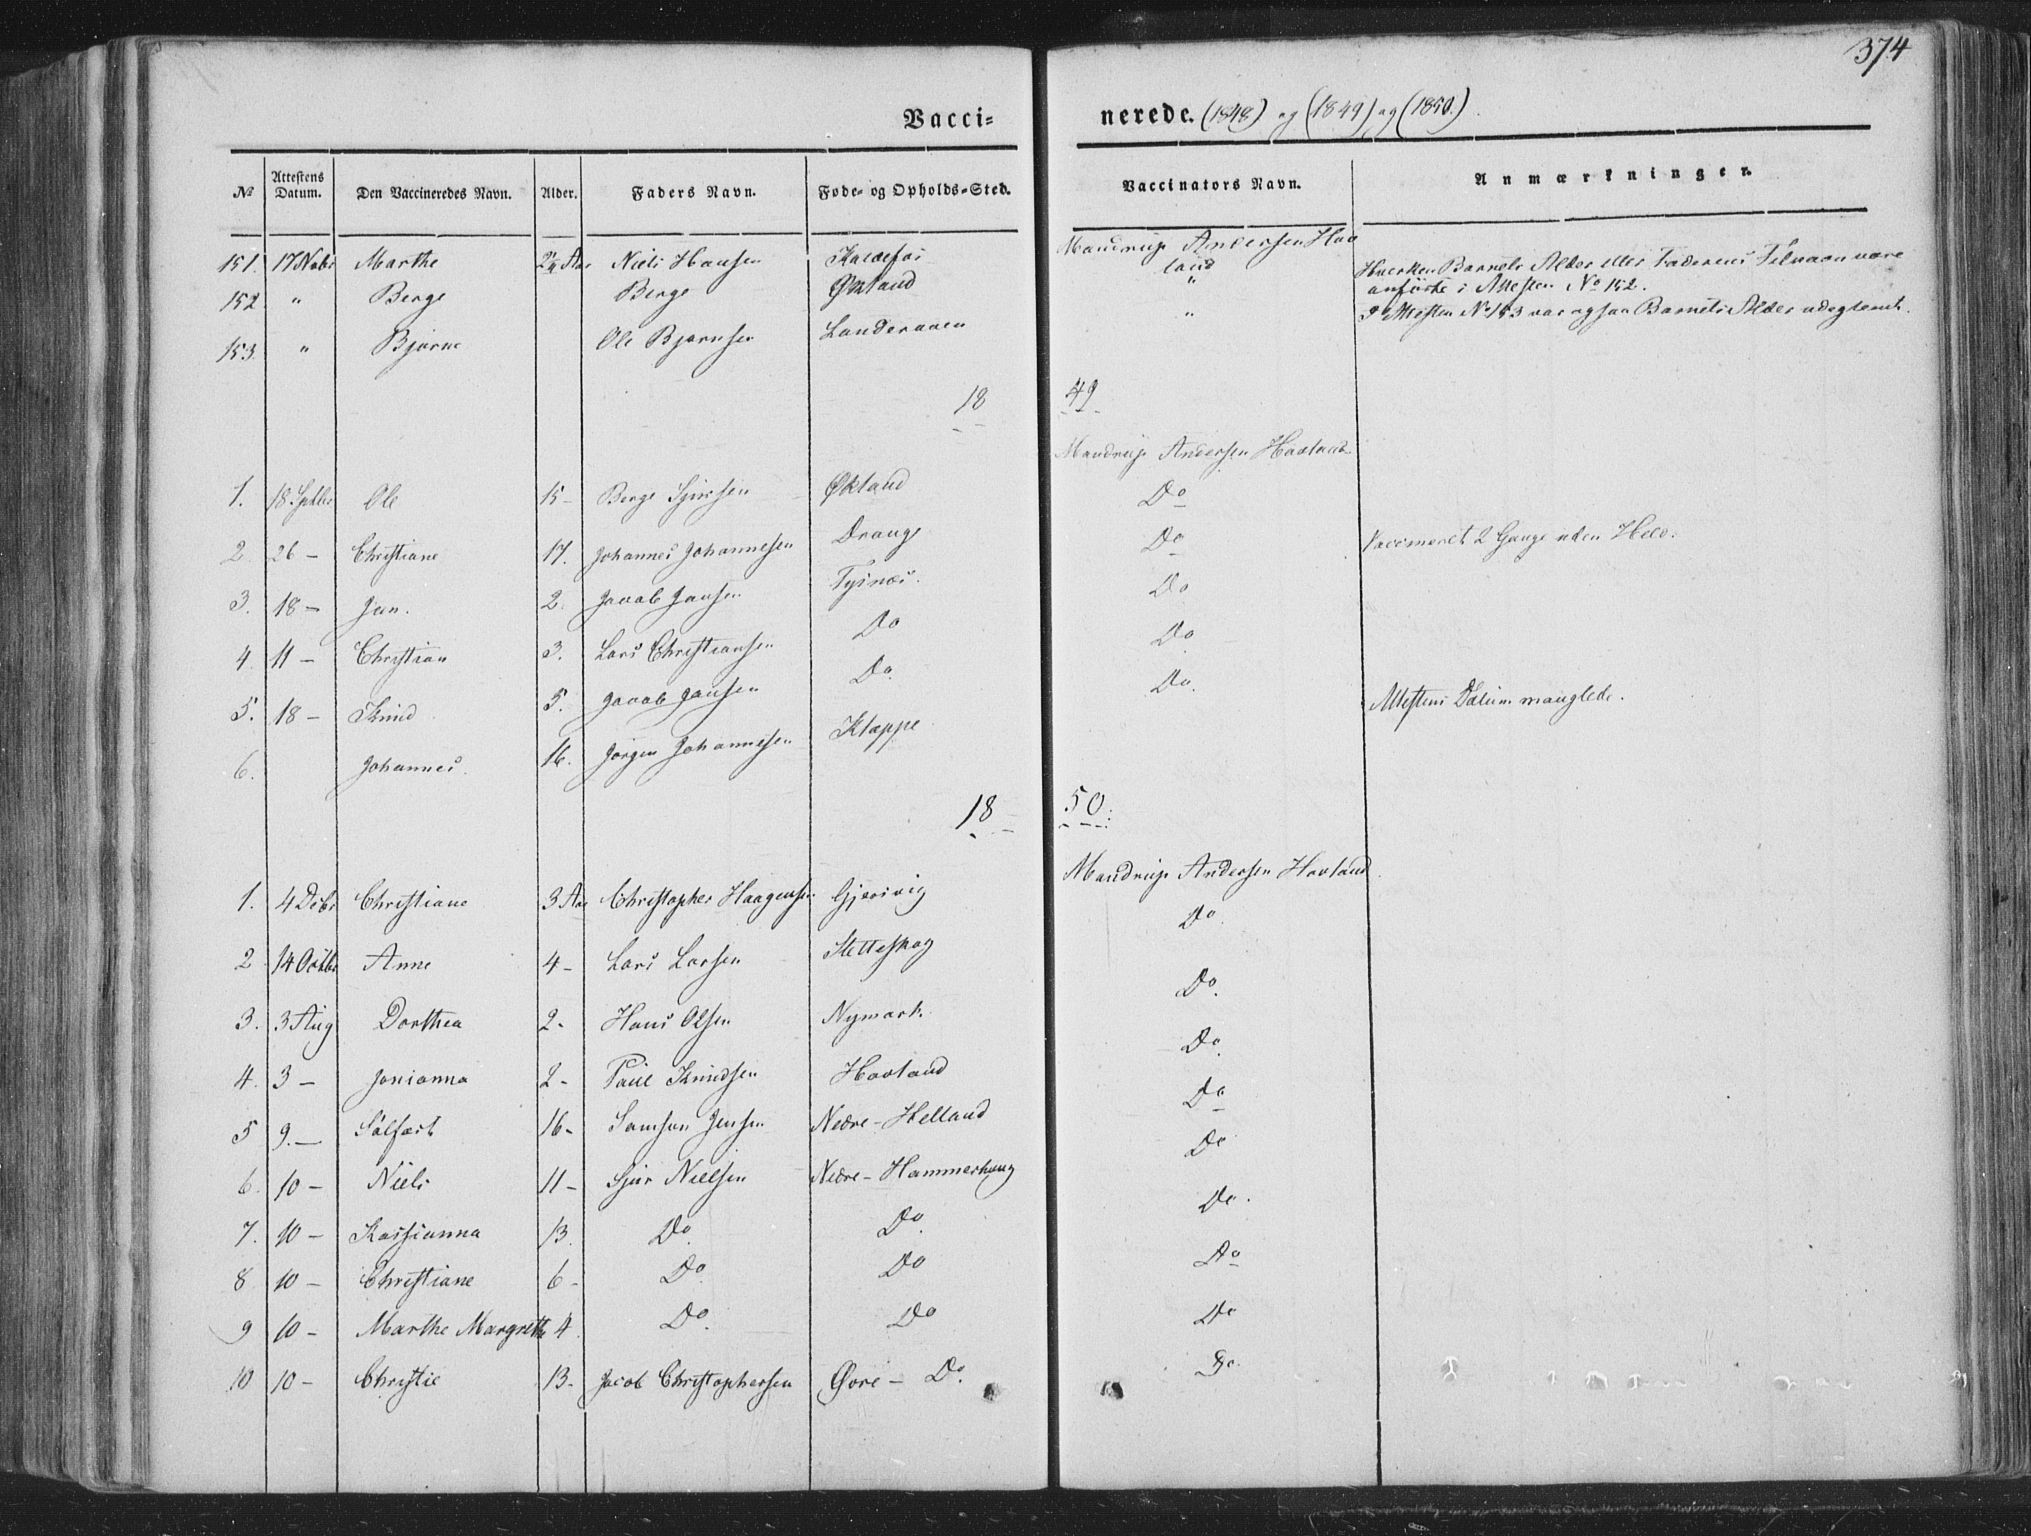 374
Vacci= nerede. (1848) og (1849) og (1850.)
No Attestens Datum. Den Vaccineredes Navn. Alder. Faders Navn. Føde- og Opholds-Sted. Vaccinators Navn. Anmærkninger.
151. 17 Novbr Marthe Aar Niels Hansen Mandrup Andersen Hav
land
Hverken Barnets Alder eller Faderens Tilnavn vare
152. " Berge Berge Økland " anførte i Attesten No 152.
153. " Bjørne Ole Bjørnsen Landeraaen " I Attesten No 153 var ogsaa Barnets Alder udeglemt.
18 49
Mandrup Andersen Havland
1. 18 Septbr Ole 15 – Berge Sjursen Økland Do
2 26 – Christiane 17. Johannes Johannesen Drange Do Vaccineret 2 Gange uden Held.
3. 18 – Jan. 2. Jacob Jansen Tysnæs. Do
4. 11 – Christian 3. Lars Christiansen Do Do
5. 18 – Knud 5. Jacob Jansen Do. Do. Attestens Datum manglede.
6. Johannes. 16. Jørgen Johannesen Kleppe
18 50.
Mandrup Andersen Havland
1. 4 Decbr Christiane 3 Aar Christopher Haagensen Gjersvig Do.
2 14 Octbr Anne 4 – Lars Larsen Stetteskog Do.
3. 3 Aug Dorthea 2 - Hans Olsen Nymark. Do.
4. 3 – Jonianna 2 - Paul Knudsen Hovland Do
5 9. – Sølfæst 16 - Samson Jensen Nedre - Helland Do
6. 10 – Niels 11 – Sjur Nielsen Nedre - Hammerhaug Do.
7. 10 – Kassianna 13. Do. Do. Do
8 10 – Christiane 6 – Do. Do Do
9 10 – Marthe Margrethe 4. Do. Do Do.
10 10 – Christie 13 - Jacob Christophersen Øvre – Do.